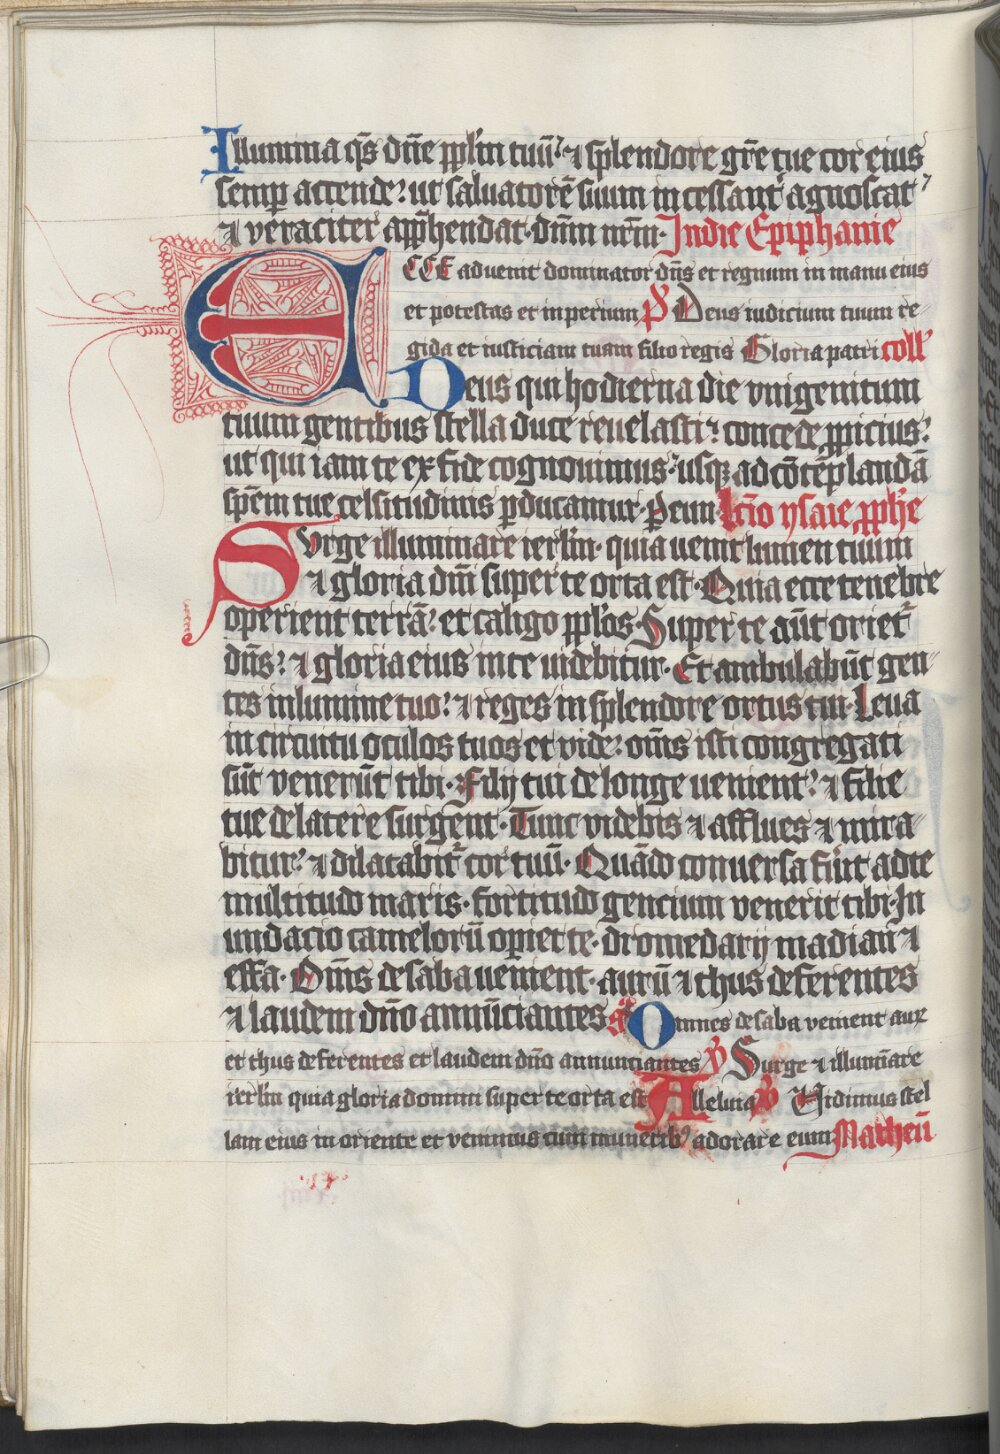 Illumina qs̄ dn̄e ppl'm tuū ⁊ splendore gr̄e tue cor eius
semp̲ accende: ut saluatorē suum incessant᷑ agnoscat
⁊ veraciter app̄hendat. dn̄m nr̄m. Indie Epiphanie
ECCE aduenit dominator dn̄s et regnum in manu eius
et potestas et inperium ps̄ Deus iudicium tuum re-
gida et iusticiam tuam filio regis Gloria patri coll'
Deus qui hodierna die vnigenitum
tuum gentibus stella duce reuelasti: concede ꝓpicius:
ut qui iam te ex fide cognouimus: usqꝫ ad cōtēplandā
spēm tue celsitudinis ꝑducamur. ꝑ eun Lc̄io ysaie ꝓph'e
Surge illuminare ierl'm. quia uenit lumen tuum
⁊ gloria dn̄i super te orta est. Quia ecce tenebre
operient terrā: et caligo ppl'os. Super te aūt oriet᷑
dn̄s: ⁊ gloria eius in te uidebitur. Et ambulabūt gen-
tes in lumine tuo: ⁊ reges in splendore ortus tui. Leua
in circuitu oculos tuos et vide: om̄s isti congregati
sūt venerūt tibi. Filij tui de longe uenient: ⁊ filie
tue de latere surgent. Tunc videbis ⁊ afflues ⁊ mira-
bitur: ⁊ dilatabit᷑ cor tuū. Quādo conuersa fūit ad te
multitudo maris. fortitudo gencium venerit tibi. In
undacio camelorū oꝑiet te. dromedarij madian ⁊
effa. Om̄s de saba uenient. aurū ⁊ thus deferentes
⁊ laudem dn̄o annūciantes. g̃ Omnes de saba venient aur̄
et thus deferentes et laudem dn̄o annunciantes ℣ Surge ⁊ illumiare
ierl'm quia gloria domini super te orta est Alleluia ℣ Vidimus stel
lam eius in oriente et venimus cum munerib' adorare eum Matheū